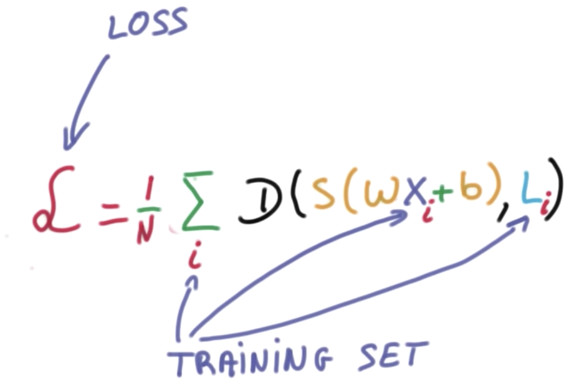 LOSS
ℒ = 1/N Σ_i D(S(WX_i + b), L_i)
TRAINING SET